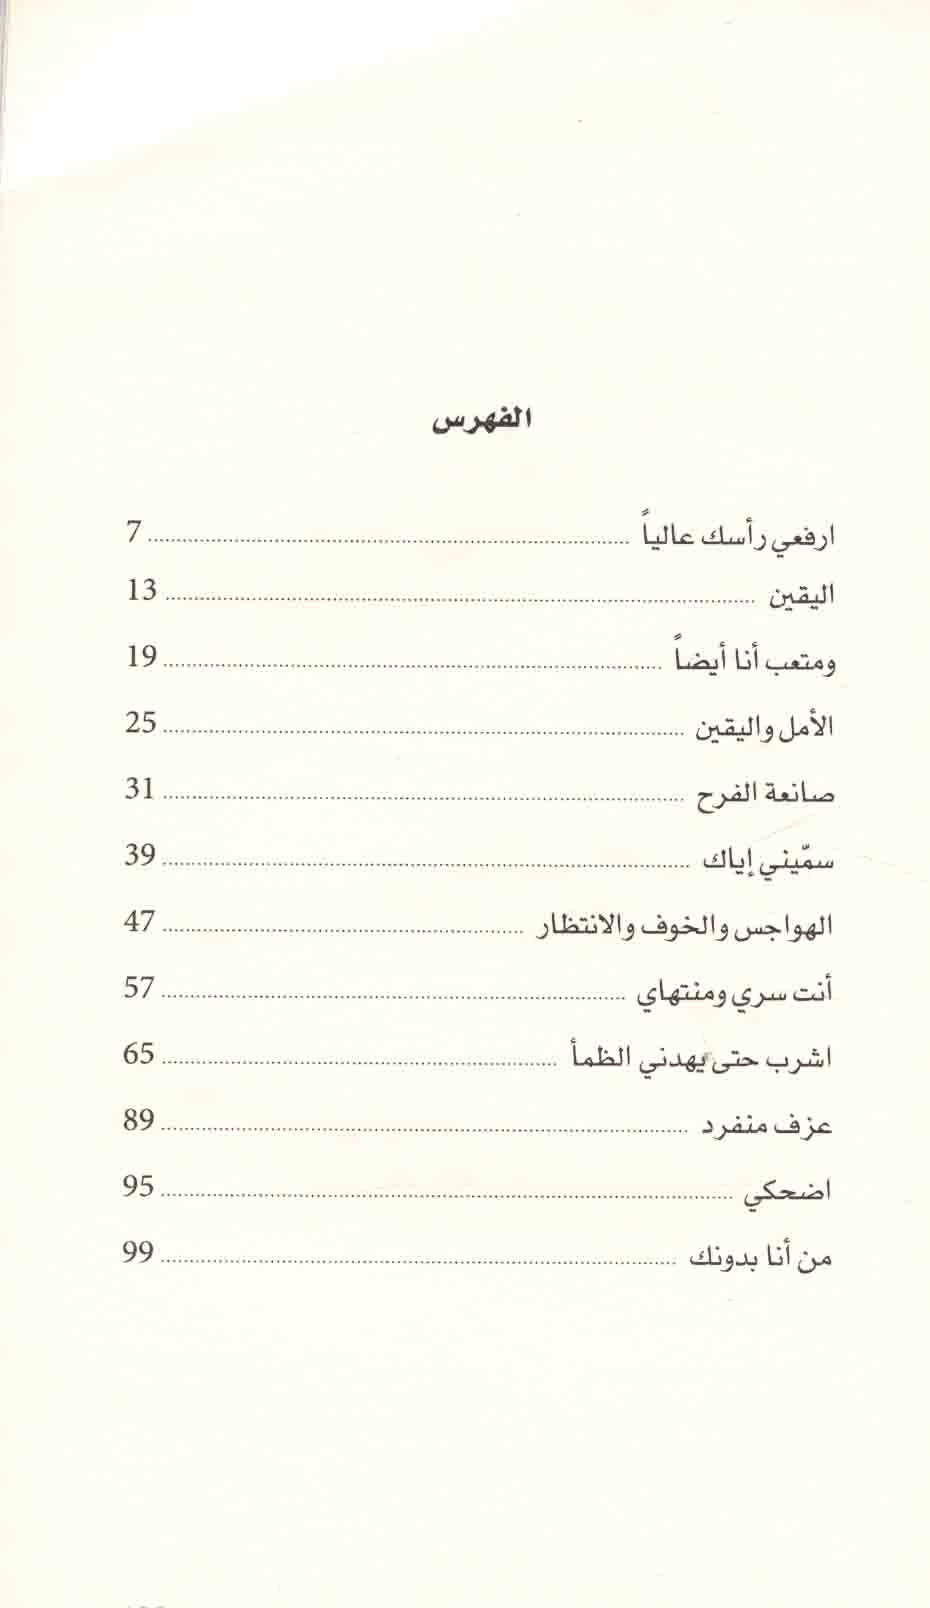 الفهرس
ارفعي رأسك عالياً ........ 7
اليقين ........ 13
ومتعب أنا أيضاً ........ 19
الأمل واليقين ........ 25
صانعة الفرح ........ 31
سمّيني إياك ........ 39
الهواجس والخوف والانتظار ........ 47
أنت سري ومنتهاي ........ 57
اشرب حتى يهدني الظمأ ........ 65
عزف منفرد ........ 89
اضحكي ........ 95
من أنا بدونك ........ 99